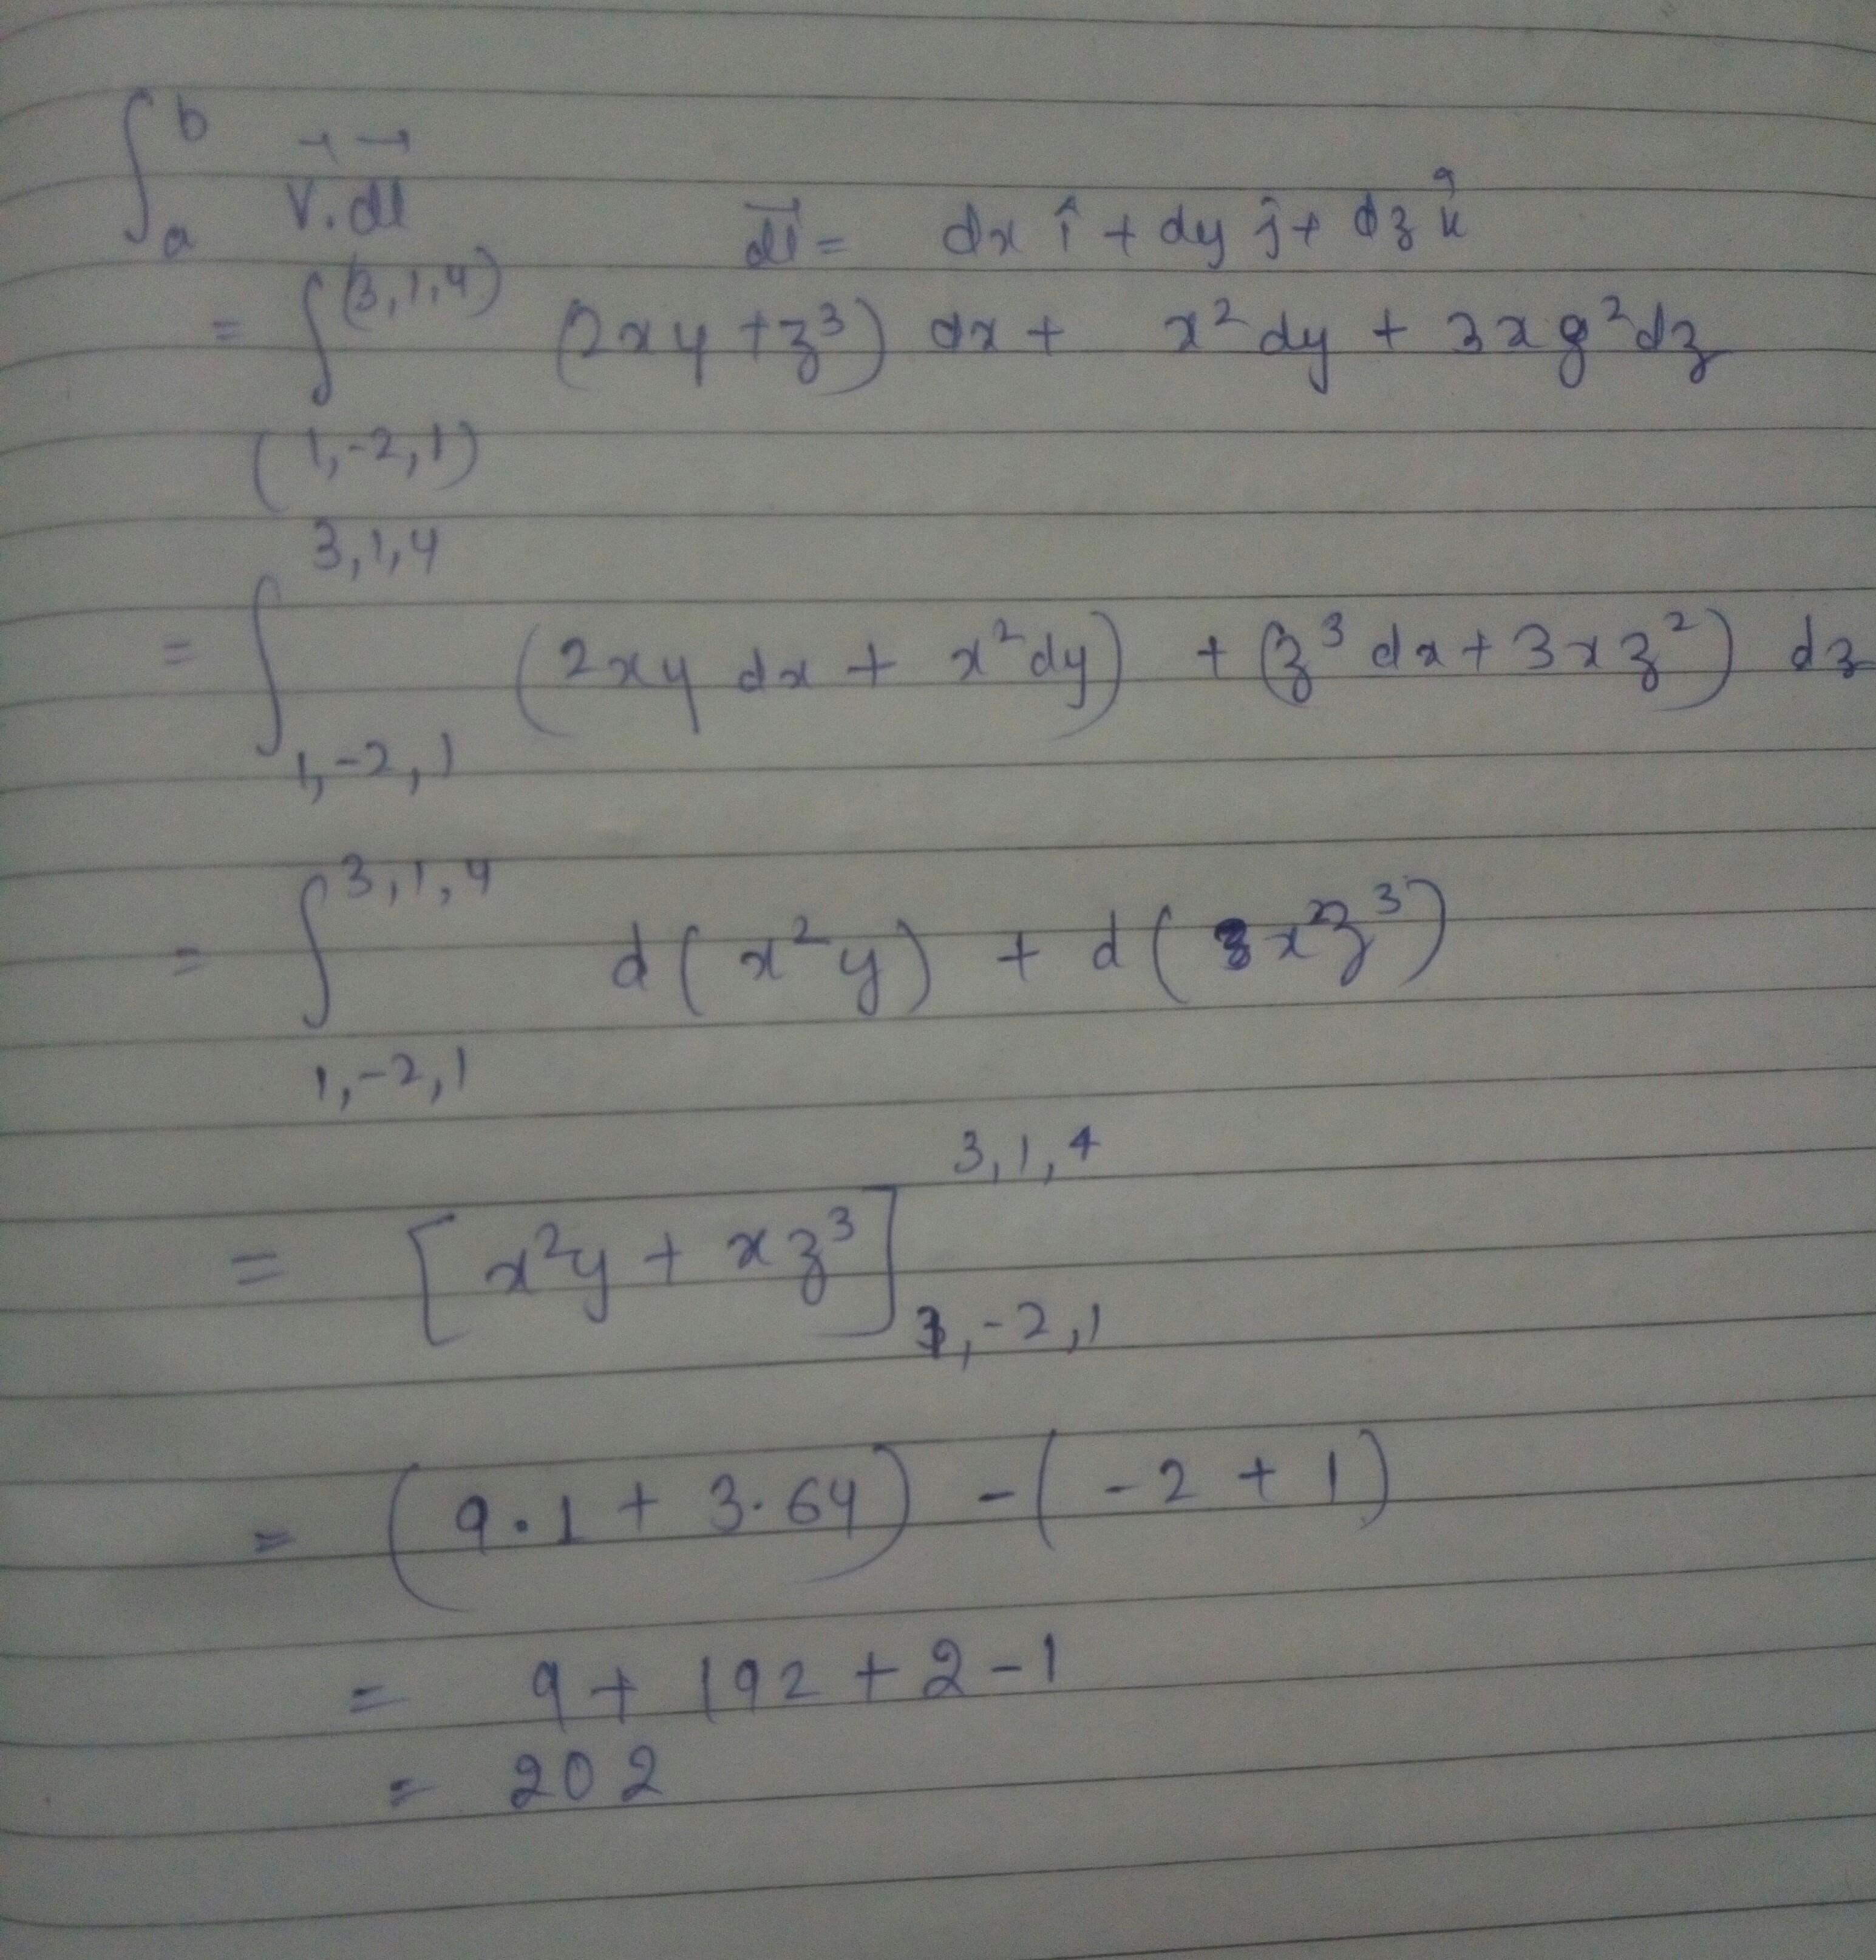 ∫ₐᵇ V⃗.dl⃗    dl⃗ = dx î + dy ĵ + dz k̂
= ∫₍₁,₋₂,₁₎^(3,1,4) (2xy + z³) dx + x² dy + 3xz² dz
= ∫_{1,-2,1}^{3,1,4} (2xy dx + x² dy) + (z³ dx + 3xz²) dz
= ∫_{1,-2,1}^{3,1,4} d(x²y) + d(xz³)
= [x²y + xz³]_{1,-2,1}^{3,1,4}
= (9.1 + 3.64) - (-2 + 1)
= 9 + 192 + 2 - 1
= 202